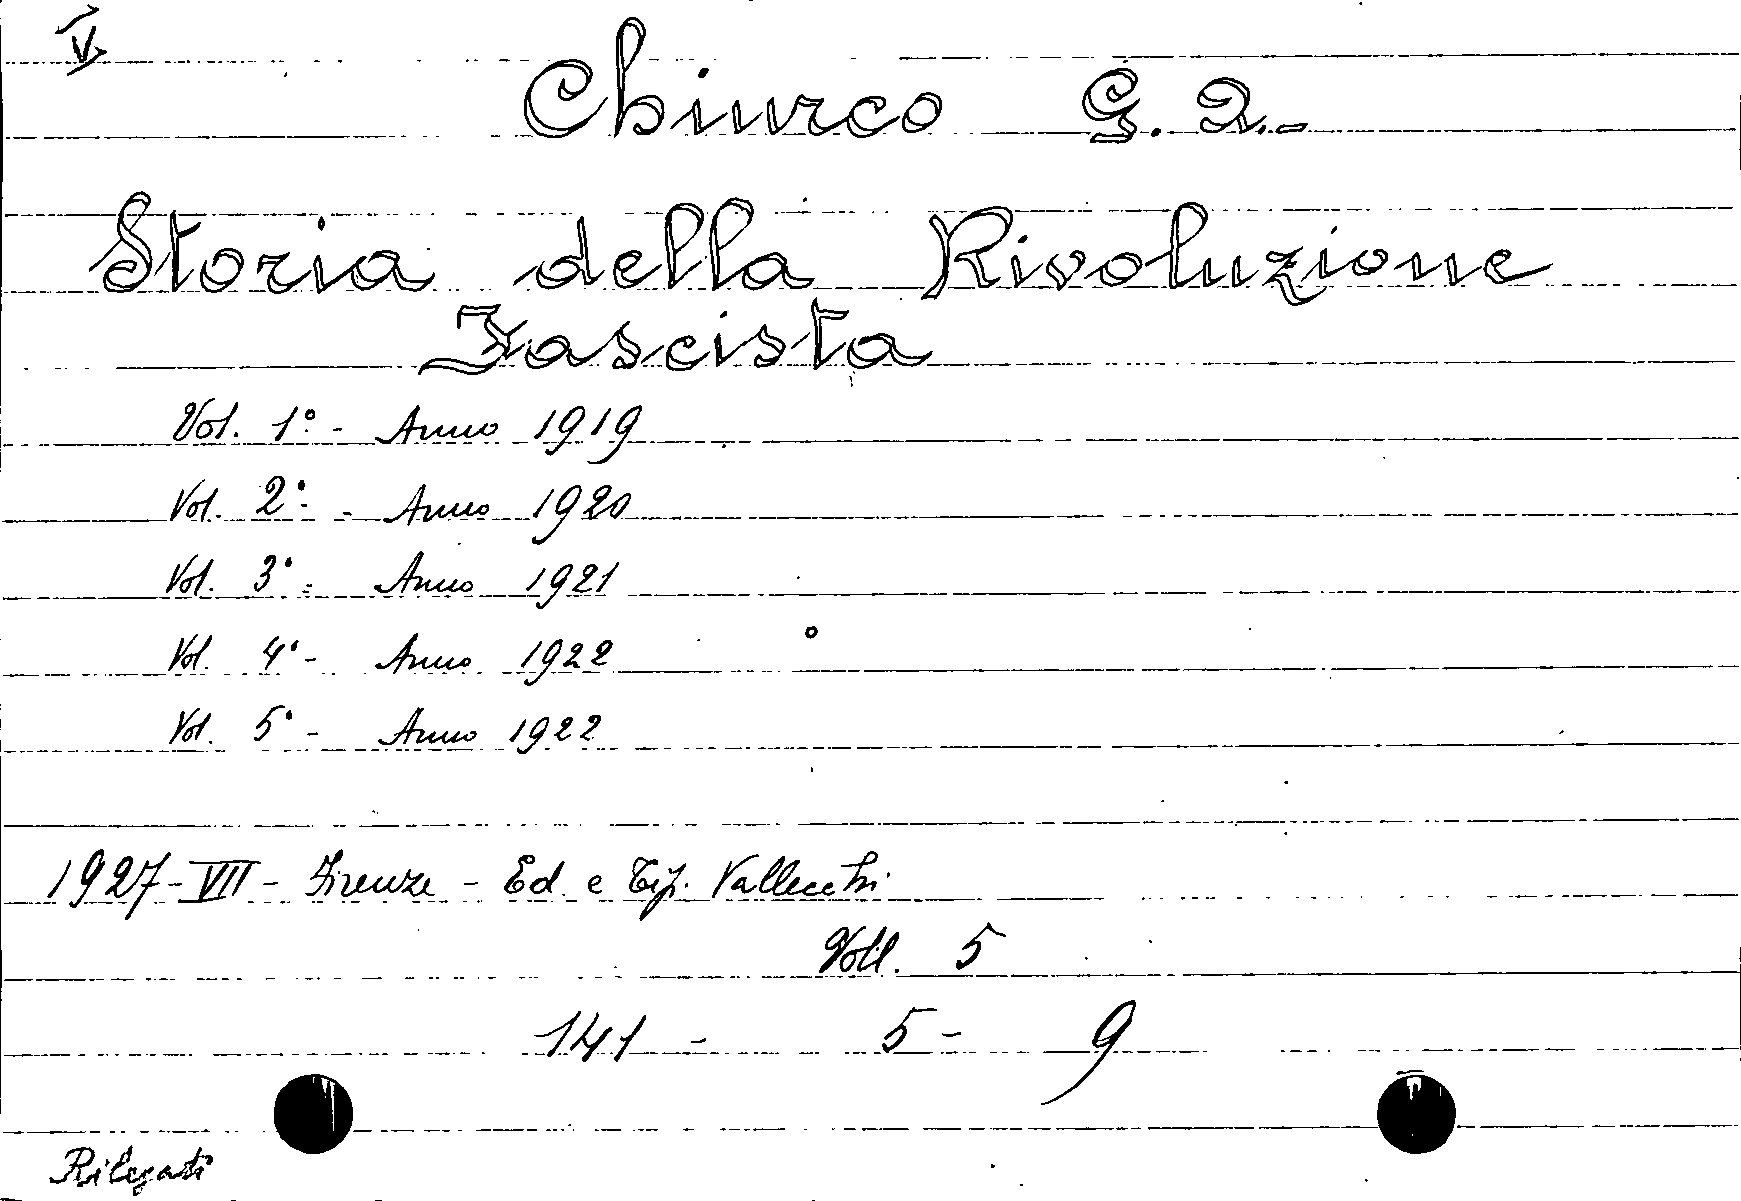 V
Chiurco G. A.-
Storia della Rivoluzione
Fascista
Vol. 1° - Anno 1919
Vol. 2° - Anno 1920
Vol. 3° - Anno 1921
Vol. 4° - Anno 1922
Vol. 5° - Anno 1922
1927-VII - Firenze - Ed. e Tip. Vallecchi
Voll. 5
141 - 5 - 9
Rilegati